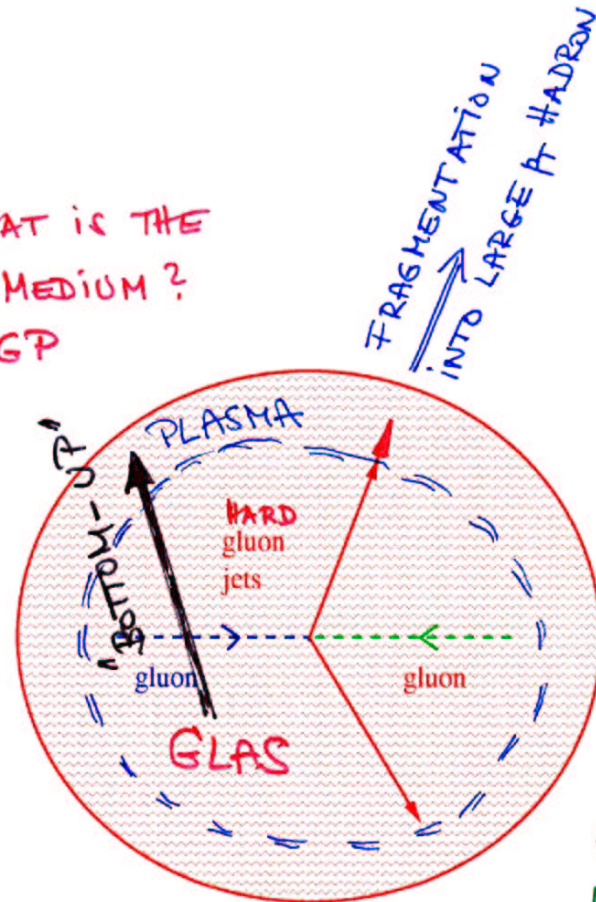 AT is THE
MEDIUM?
GP
FRAGMENTATION
iNTO LARGE PT HADRON
PLASMA
"BOTTOM-UP"
HARD
gluon
jets
gluon
gluon
GLAS